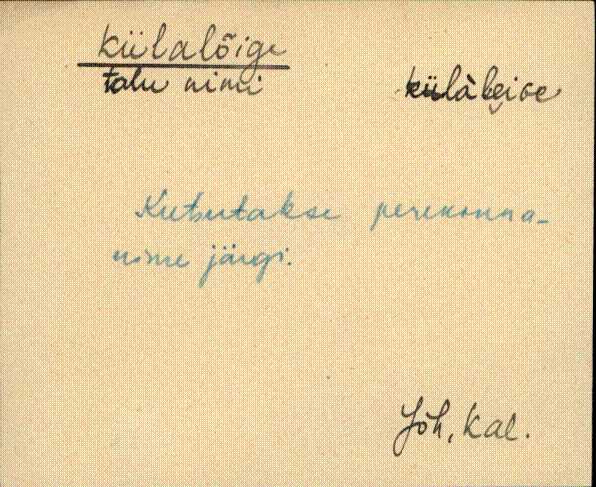 Külalõige
talu nimi
Kutsutakse perekonna-
nime järgi.
Jõh, Kal.